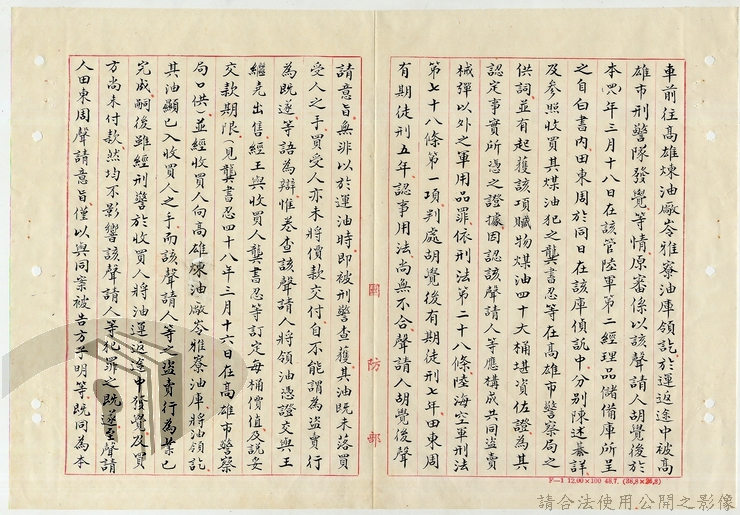 車前往高雄煉油廠岺雅寮油庫領訖於運返途中被高
雄市刑警隊發覺等情原審係以該聲請人胡覺後於
本(四八)年三月十八日在該管陸軍第二經理品儲備庫所呈
之自白書內田東周於同日在該庫偵訊中分別陳述綦詳
及參照收買其煤油犯之龔書忍等在高雄市警察局之
供詞並有起獲該項贓物煤油四十大桶堪資佐證為其
認定事實所憑之證據因認該聲請人等應構成共同盜賣
械彈以外之軍用品罪依刑法第二十八條陸海空軍刑法
第七十八條第一項判處胡覺後有期徒刑七年田東周
有期徒刑五年認事用法尚無不合聲請人胡覺後聲
請意旨無非以於運油時即被刑警查獲其油既未落買
受人之手買受人亦未將價款交付自不能謂為盜賣行
為既遂等語為辯惟卷查該聲請人將領油憑證交與王
繼先出售經王與收買人龔書忍等訂定每桶價值及說妥
交款期限(見龔書忍四十八年三月十六日在高雄市警察
局口供)並經收買人向高雄煉油廠岺雅寮油庫將油領訖
其油顯已入收買人之手而該聲請人等之盜賣行為業已
完成嗣後雖經刑警於收買人將油運返途中發覺及買
方尚未付款然均不影響該聲請人等犯罪之既遂至聲請
人田東周聲請意旨僅以與同案被告方孚明等既同為本
國防部
F—1 12.00×100 48.7. (38.8×26.8)
請合法使用公開之影像